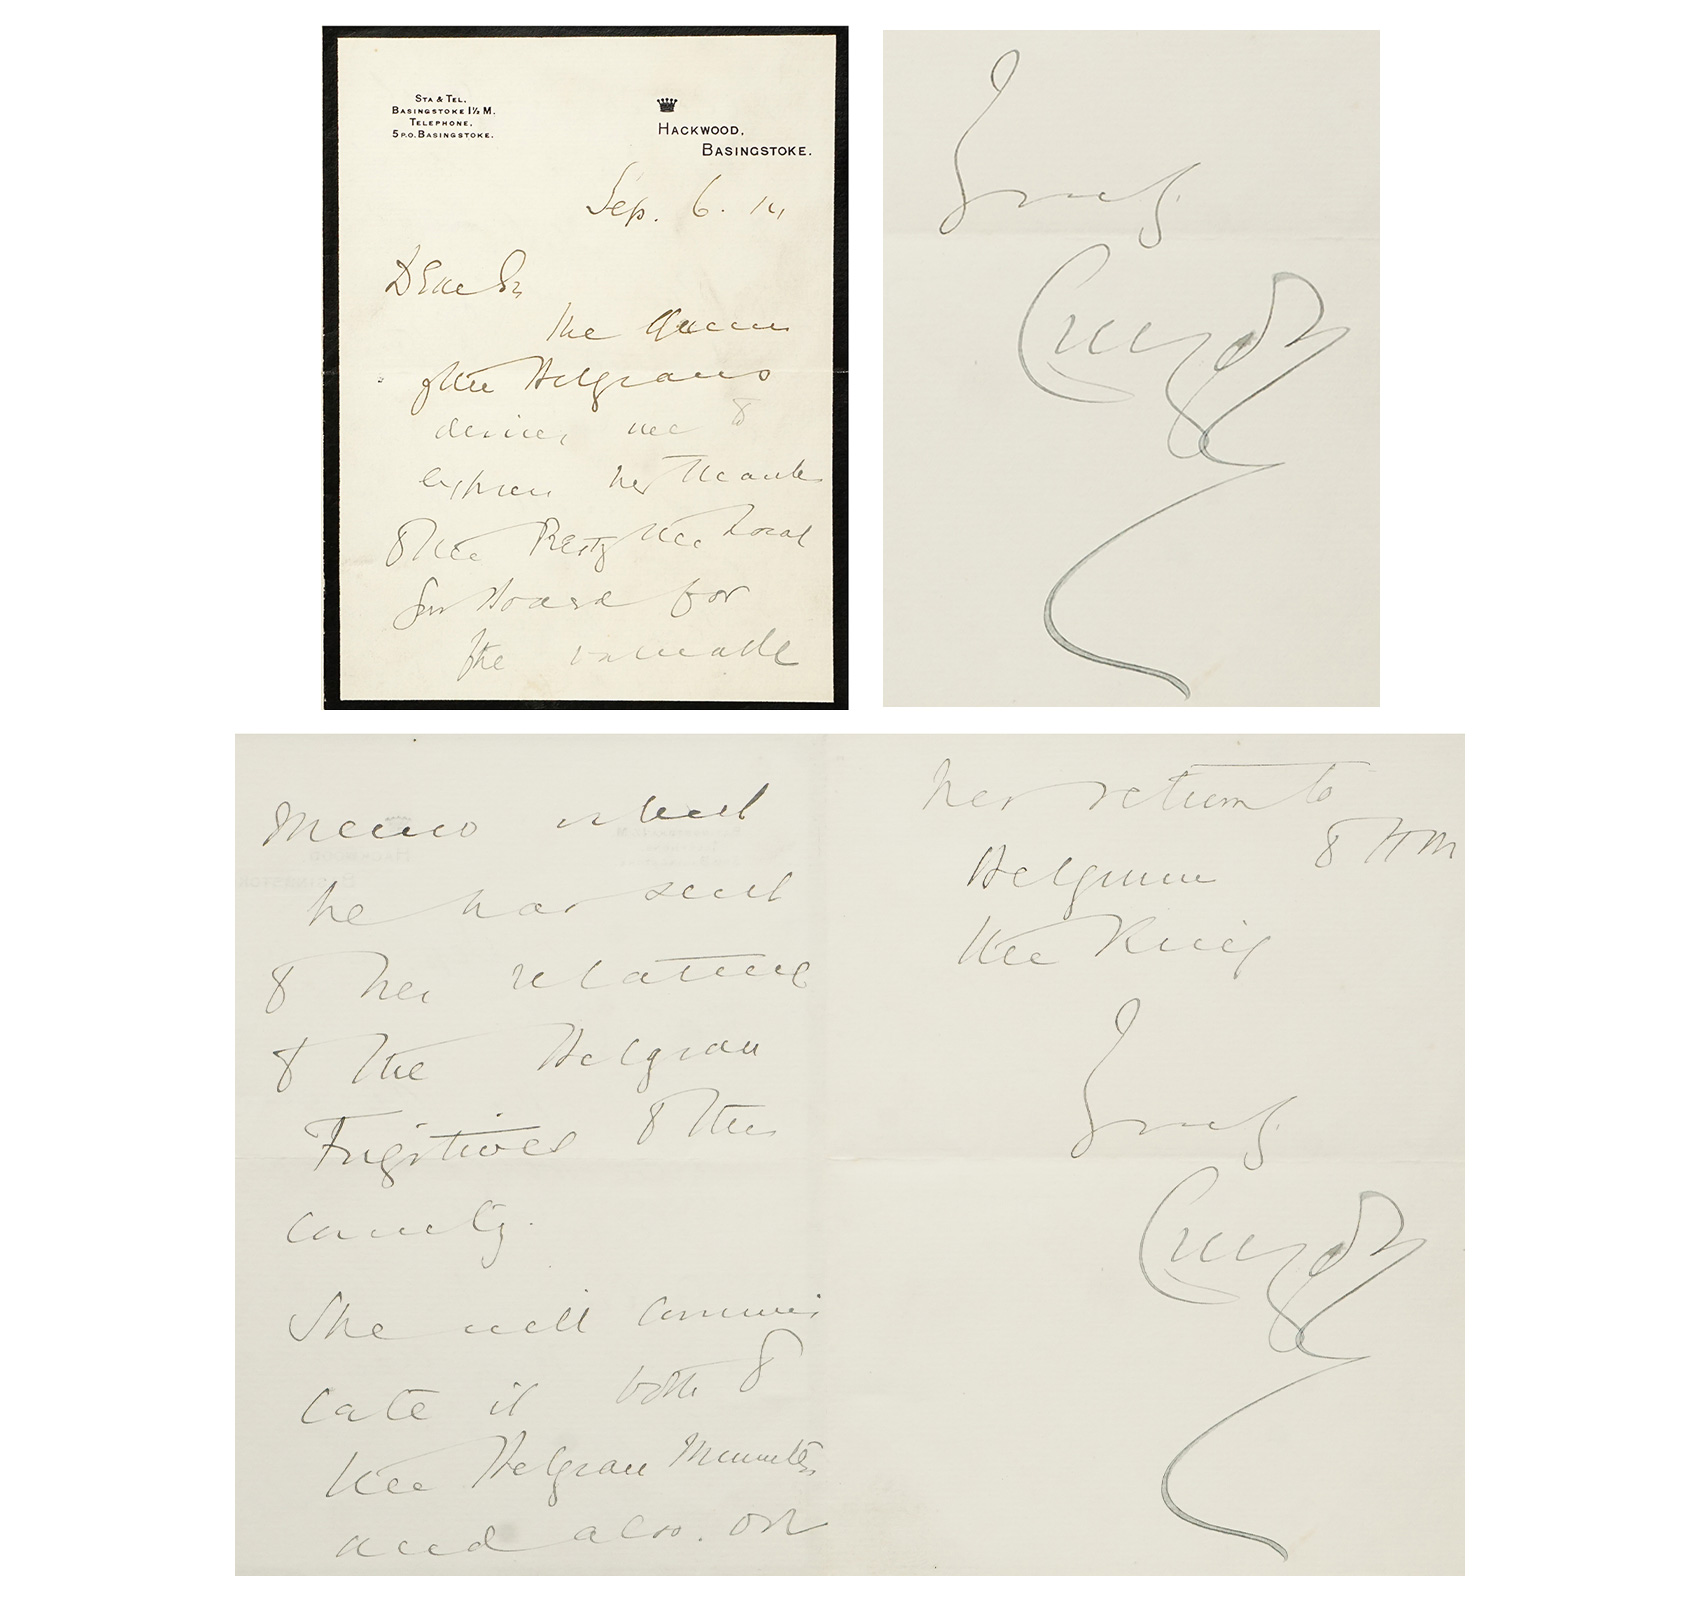 STA & TEL.
BASINGSTOKE 1½ M.
TELEPHONE.
5 P.O. BASINGSTOKE.
HACKWOOD,
BASINGSTOKE.
Sep. 6. 14
Dear Sir
The Queen
of the Belgians
desires me to
express her thanks
to the Prest of the Local
Gov Board for
the valuable
Yours
Curzon of K
Memo which
he has sent
to her relating
to the Belgian
Fugitives to this
country.
She will communi
cate it both to
the Belgian Minister
and also. on
her return to
Belgium to HM
the King
Yours
Curzon of K